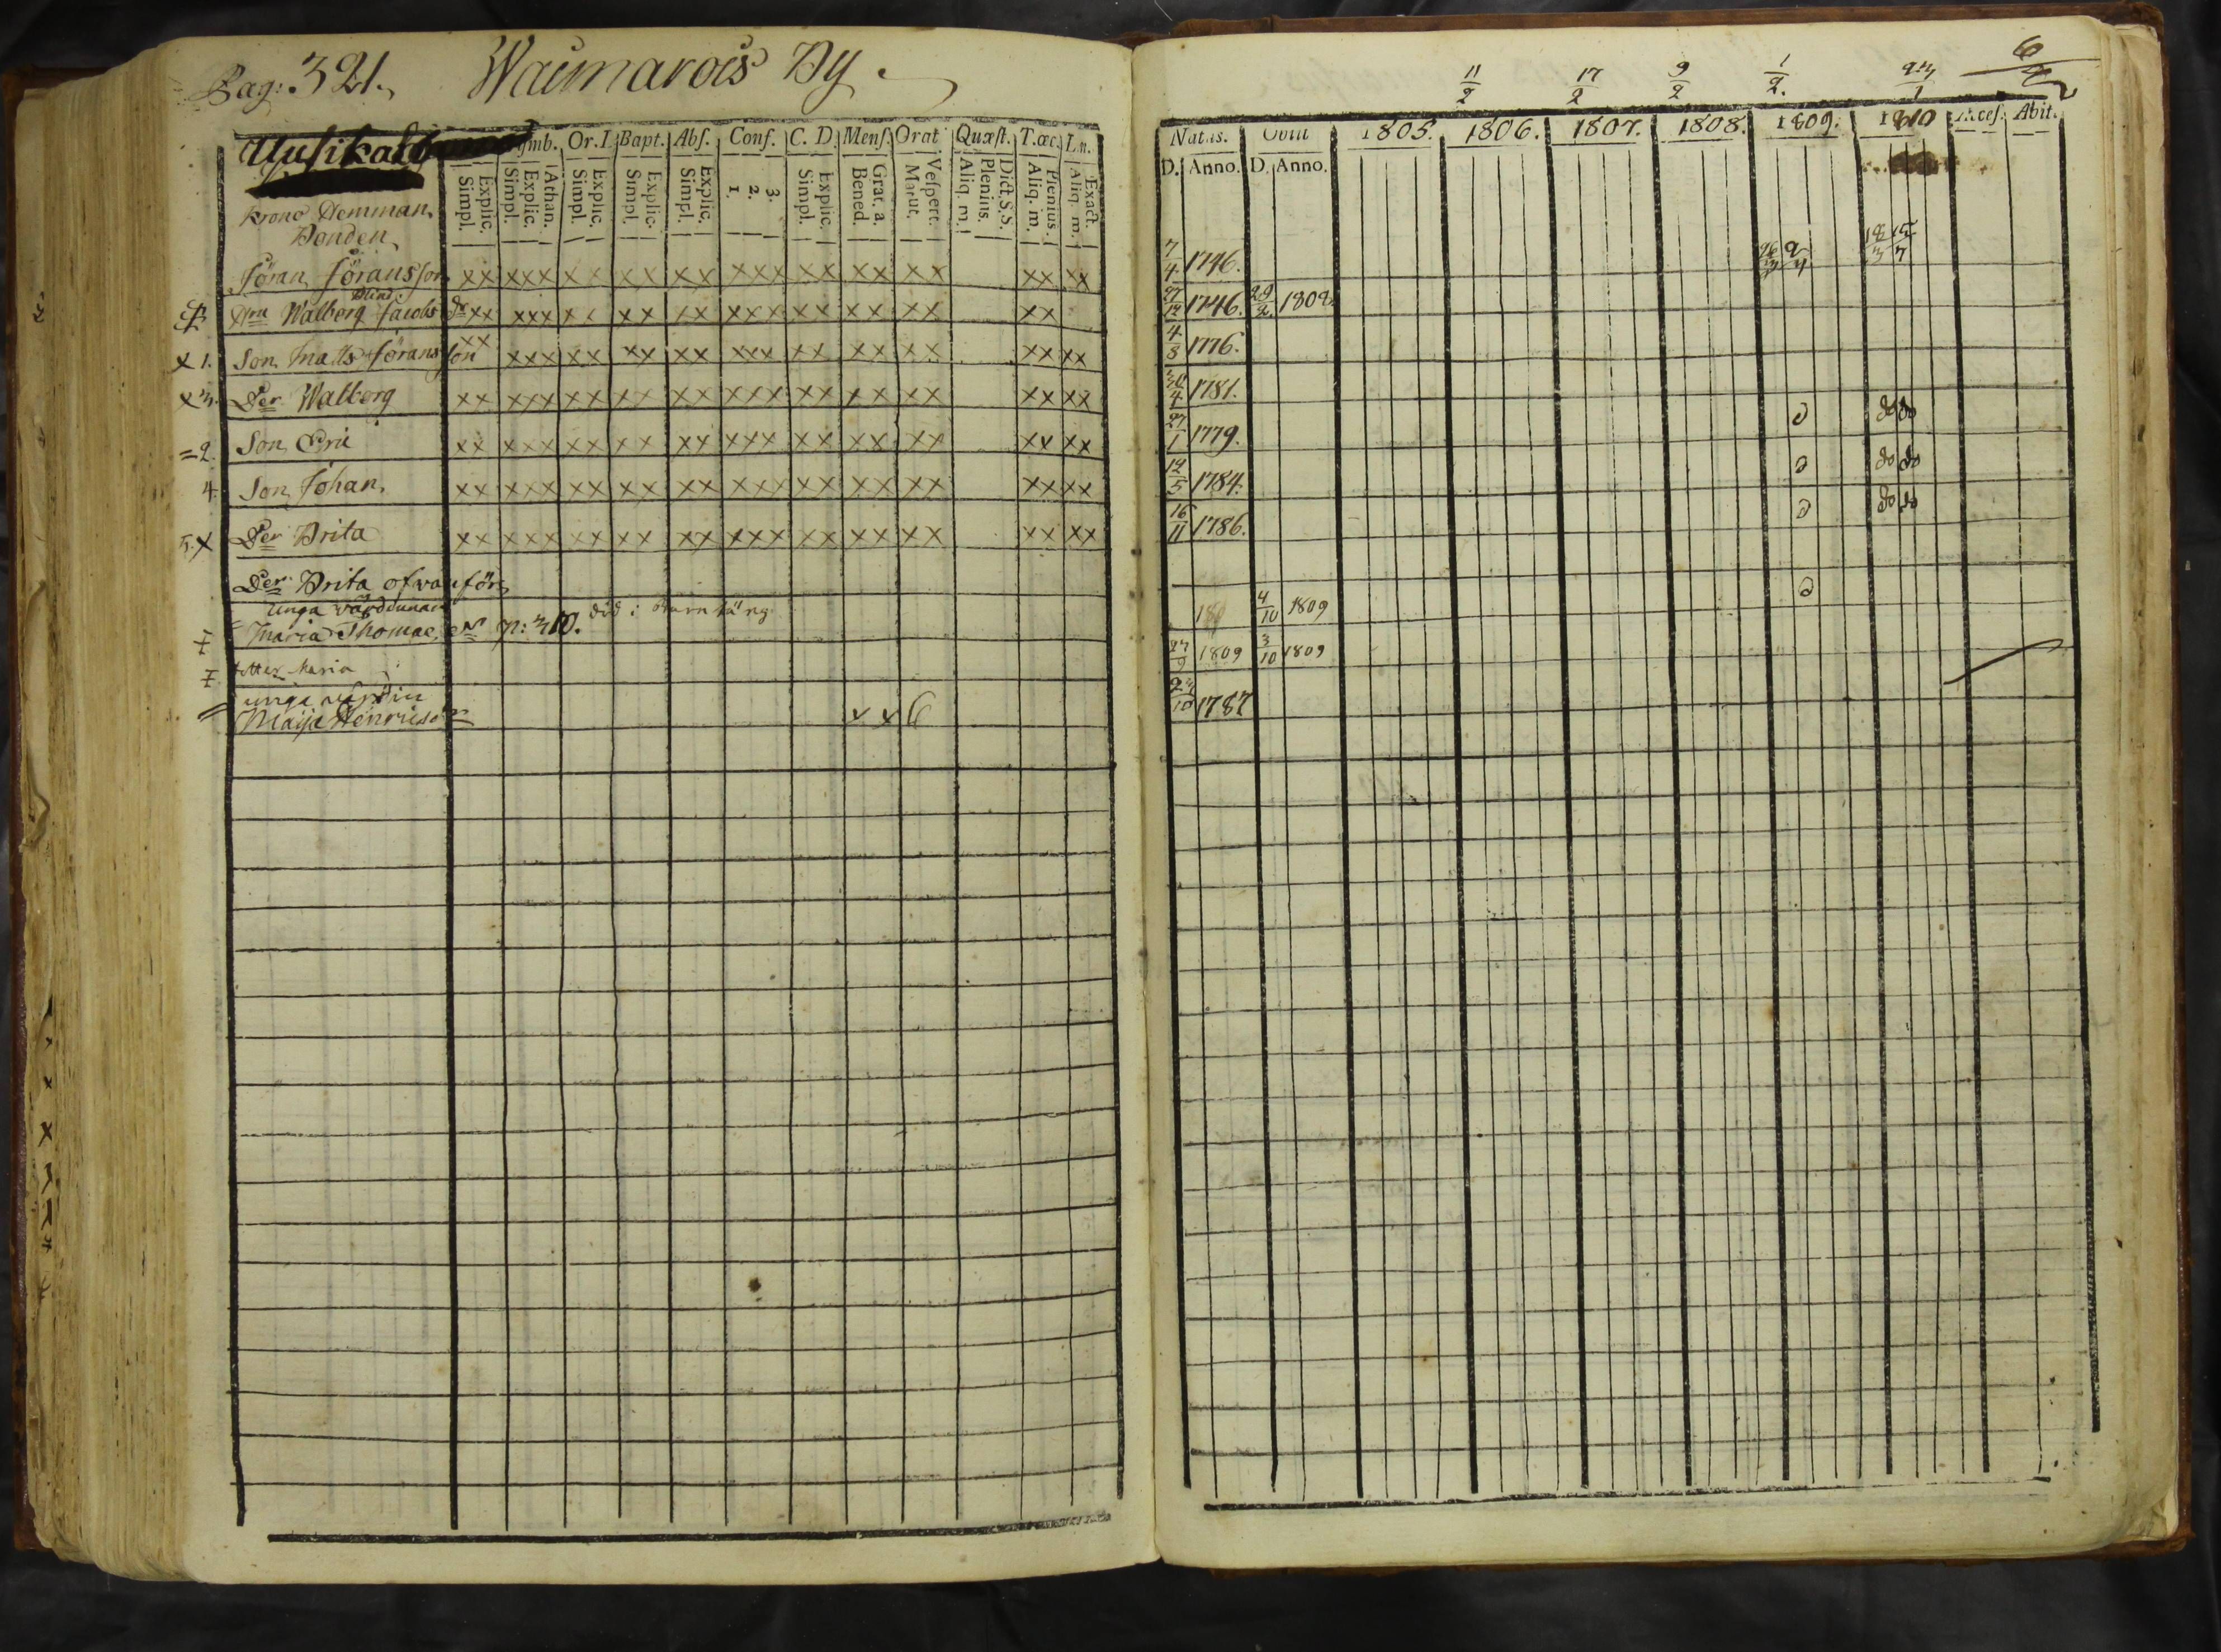 Pag: 321. Waimarois By.
11/2 17/2 9/2 1/2.
Symb. Or. D. Bapt. Abs. Conf. C. D. Mens. Orat. Quæst. T. œc. Ln.
Explic. Simpl. Athan. Explic. Simpl. Explic. Simpl. Explic. Simpl. Explic. Simpl. 3. 2. 1. Explic. Simpl. Grat. a. Bened. Vespert. Matut. Dict. S.S. Plenius. Aliq. m. Plenius. Aliq. m. Exact. Aliq. m.
Natus. Obiit 1805. 1806. 1807. 1808. 1809. 1810 Acces. Abit.
D. Anno. D. Anno.
Krono Hemman,
Bonden,
Jöran Jöransson xx xxx xx xx xx xxx xx xx xx xx xx 7/4 1746.
Blind
Hru Walborg Jacobs dr xx xxx xx xx xx xxx xx xx xx xx 27/12 1746. 29/2. 1808
x 1. Son Matts Jöransson xx xxx xx xx xx xxx xx xx xx xx xx 4/8 1776.
x 3. Der Walborg xx xxx xx xx xx xxx xx xx xx xx xx 30/4 1781.
=2. Son Eric xx xxx xx xx xx xxx xx xx xx xx xx 27/1 1779. do do
4. Son Johan, xx xxx xx xx xx xxx xx xx xx xx xx 19/5 1784. do do
5. x Der Brita xx xxx xx xx xx xxx xx xx xx xx xx 16/11 1786. do do
Der Brita ofwanför,
unga
Maria Thomae p: 310. död i barnsäng 4/10 1809
dotter Maria 27/9 1809 3/10 1809
unga värdin
Maija Henricsdr x x 1787